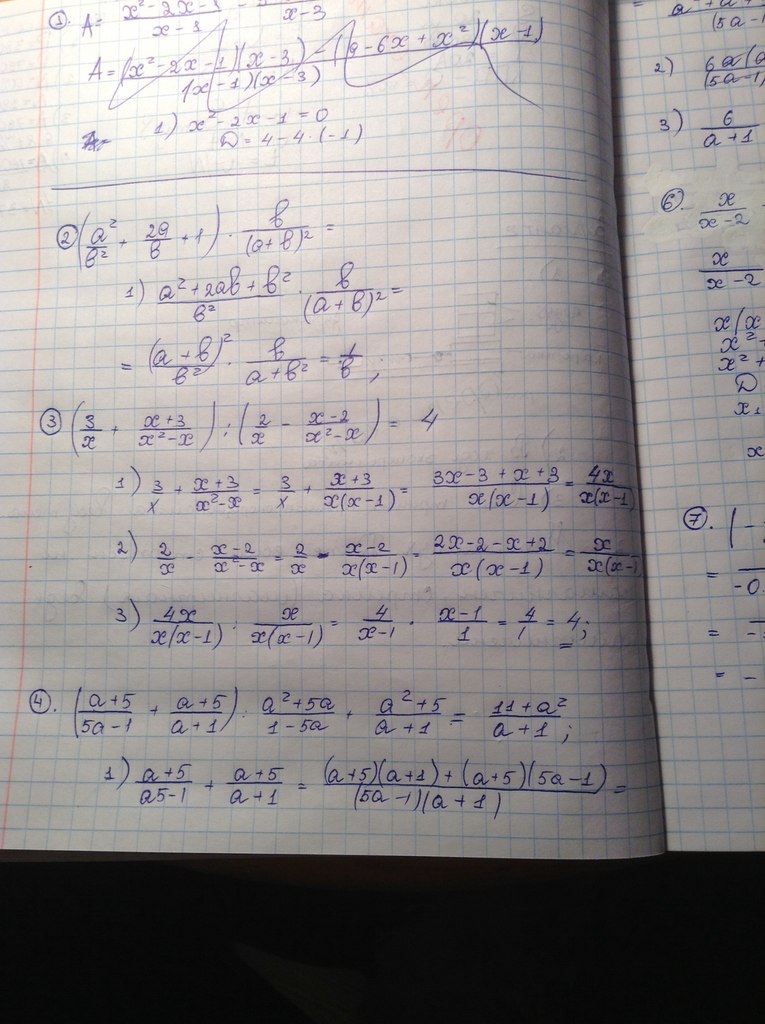 ①. A = (x² - 2x - 1)/(x - 1) -
x - 3
A = ((x² - 2x - 1)(x - 3) - (9 - 6x + x²)(x - 1))/((x - 1)(x - 3))
1) x² - 2x - 1 = 0
D = 4 - 4 · (-1)
② (a²/b² + 2a/b + 1) · b/(a+b)² =
1) (a² + 2ab + b²)/b² · b/(a+b)² =
= (a+b)²/b² · b/a+b² = 1/b;
③ (3/x + (x+3)/(x²-x)) : (2/x - (x-2)/(x²-x)) = 4
1) 3/x + (x+3)/(x²-x) = 3/x + (x+3)/(x(x-1)) = (3x-3+x+3)/(x(x-1)) = 4x/(x(x-1))
2) 2/x - (x-2)/(x²-x) = 2/x - (x-2)/(x(x-1)) = (2x-2-x+2)/(x(x-1)) = x/(x(x-1)
3) 4x/(x(x-1)) : x/(x(x-1)) = 4/(x-1) · (x-1)/1 = 4/1 = 4;
④. ((a+5)/(5a-1) + (a+5)/(a+1)) : (a²+5a)/(1-5a) + (a²+5)/(a+1) = (11+a²)/(a+1);
1) (a+5)/(a5-1) + (a+5)/(a+1) = ((a+5)(a+1) + (a+5)(5a-1))/((5a-1)(a+1)) =
(5a-1
2) 6a(a/(5a-1)
3) 6/(a+1)
⑥. x/(x-2)
x/(x-2)
x(x
x²
x² +
D
x₁
x
⑦. (-
= -0
= -
= -